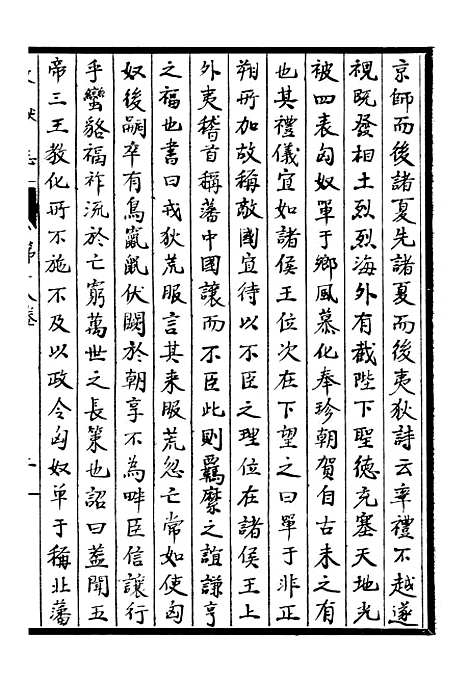 京師而後諸夏先諸夏而後夷狄詩云率禮不越遂
視既發相土烈烈海外有截陛下聖德充塞天地光
被四表匈奴單于鄉風慕化奉珍朝賀自古未之有
也其禮儀宜如諸侯王位次在下望之曰單于非正
朔所加故稱敵國宜待以不臣之理位在諸侯王上
外夷稽首稱藩中國讓而不臣此則羈縻之誼謙亨
之福也書曰戎狄荒服言其来服荒忽亡常如使匈
奴後嗣卒有鳥竄鼠伏闕於朝享不為畔臣信讓行
乎蠻貉福祚流於亡窮萬世之長策也詔曰蓋聞五
帝三王教化所不施不及以政今匈奴单于稱北藩
第十八卷